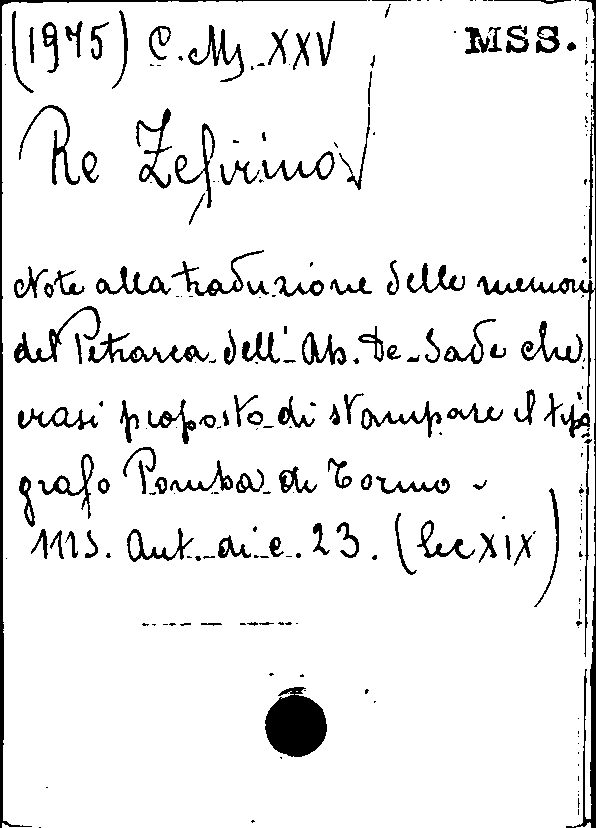 (1975) C. Ms. XXV MSS.
Re Zefirino
Note alla traduzione delle memorie
del Petrarca dell' Ab. De-Sade che
erasi proposto di stampare il tipo
grafo Pomba di Torino -
MS. Aut. di c. 23. (Sec XIX)